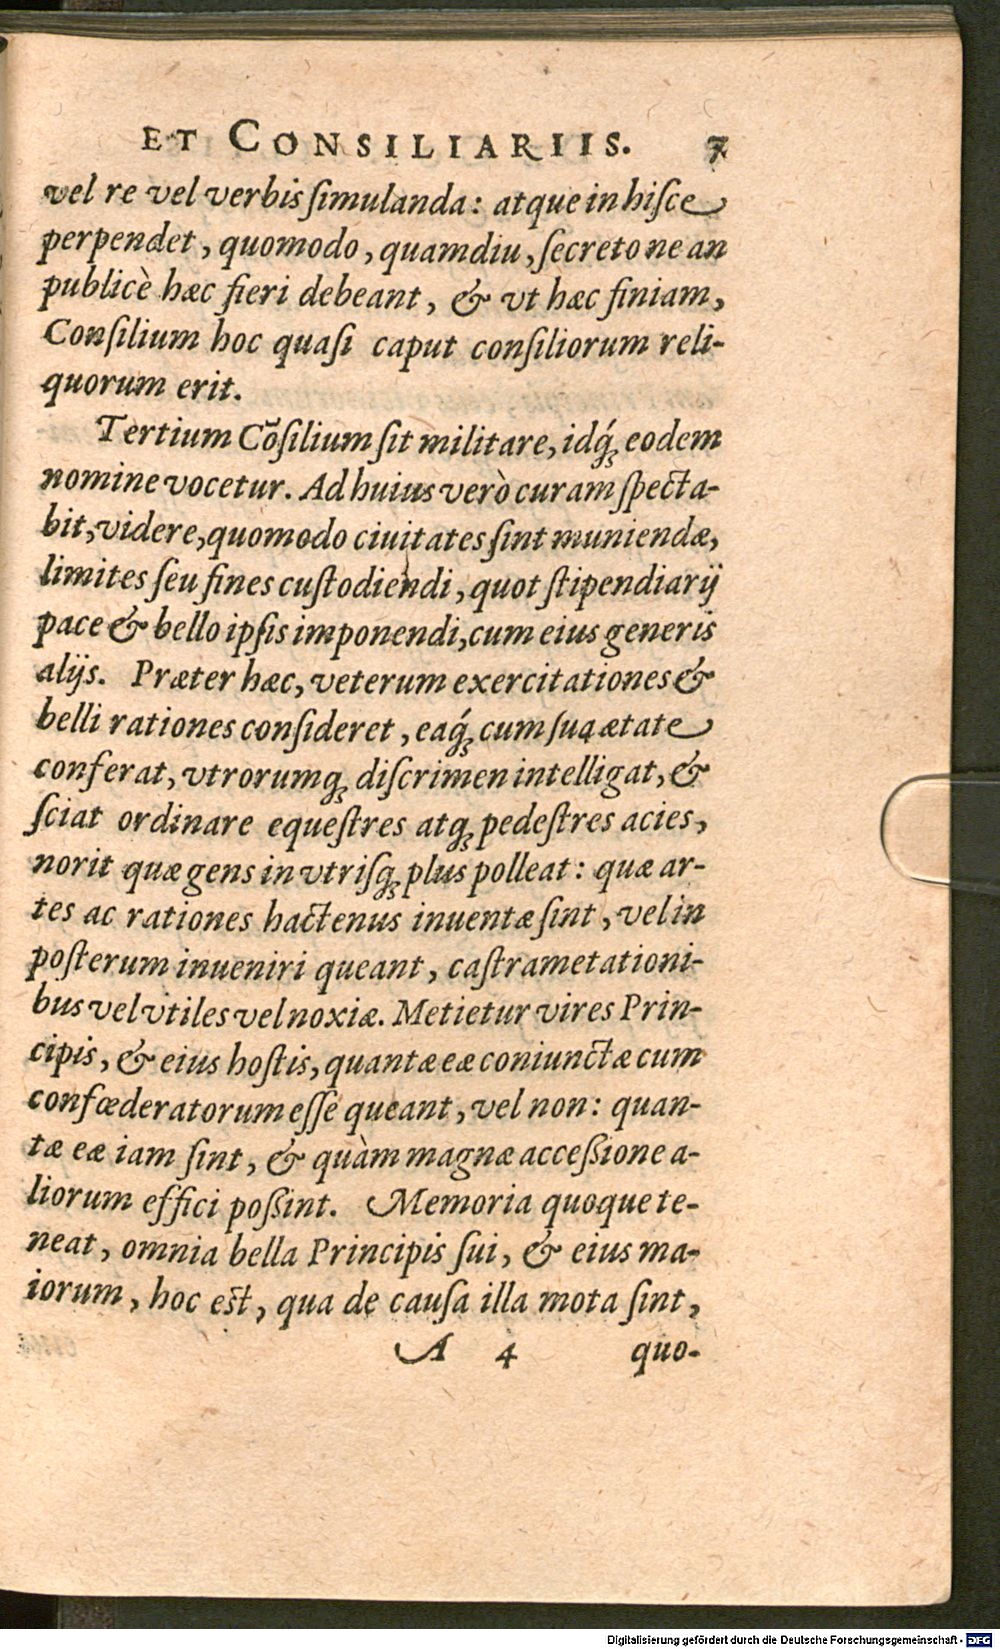 ET CONSILIARIIS. 7
vel re vel verbis ſimulanda: atque in hiſce
perpendet, quomodo, quamdiu, ſecreto ne an
publicè hæc fieri debeant, & vt hæc finiam,
Conſilium hoc quaſi caput conſiliorum reli-
quorum erit.
Tertium Cõſilium ſit militare, idq́; eodem
nomine vocetur. Ad huius verò curam ſpecta-
bit, videre, quomodo ciuitates ſint muniendæ,
limites ſeu fines cuſtodiendi, quot ſtipendiarij
pace & bello ipſis imponendi, cum eius generis
alijs. Præter hæc, veterum exercitationes &
belli rationes conſideret, eaq́; cum ſua ætate
conferat, vtrorumq; diſcrimen intelligat, &
ſciat ordinare equeſtres atq; pedeſtres acies,
norit quæ gens in vtriſq; plus polleat: quæ ar-
tes ac rationes hactenus inuentæ ſint, vel in
poſterum inueniri queant, caſtrametationi-
bus vel vtiles vel noxiæ. Metietur vires Prin-
cipis, & eius hoſtis, quantæ eæ coniunctæ cum
confœderatorum eſſe queant, vel non: quan-
tæ eæ iam ſint, & quàm magnæ acceßione a-
liorum effici poßint. Memoria quoque te-
neat, omnia bella Principis ſui, & eius ma-
iorum, hoc est, qua de cauſa illa mota ſint,
A 4 quo-
Digitalisierung gefördert durch die Deutsche Forschungsgemeinschaft - DFG